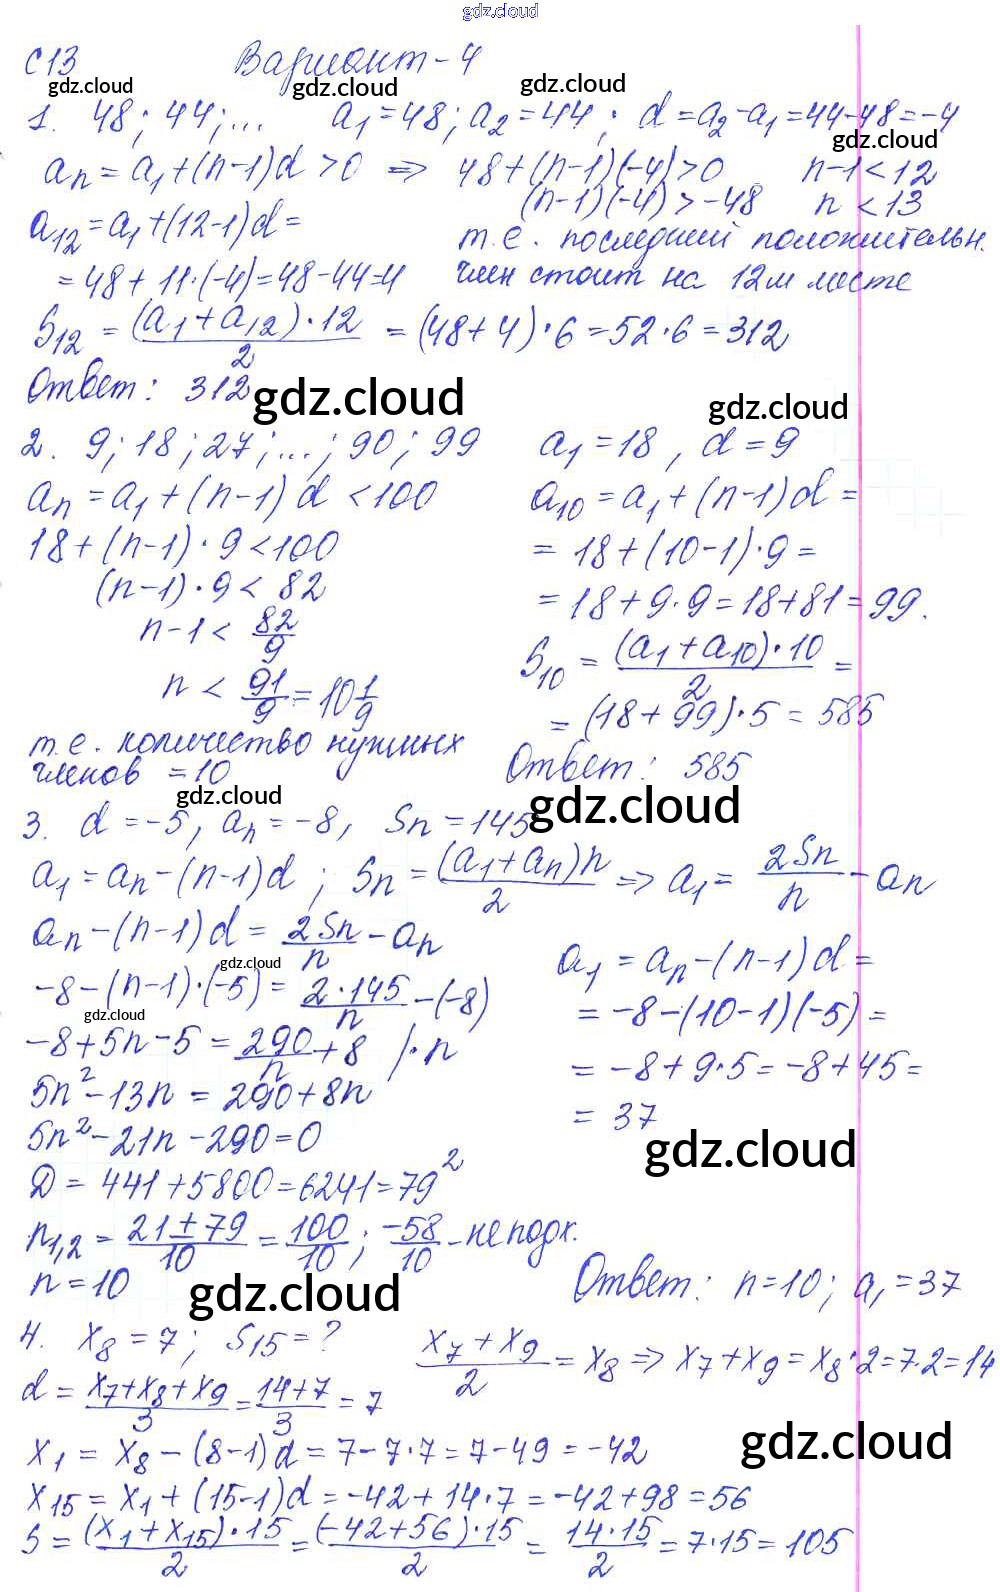 gdz.cloud
С13 Вариант-4
gdz.cloud gdz.cloud gdz.cloud
1. 48; 44; ... a₁=48; a₂=44; d=a₂-a₁=44-48=-4
gdz.cloud
aₙ=a₁+(n-1)d>0 => 48+(n-1)(-4)>0 n-1<12
(n-1)(-4)>-48 n<13
a₁₂=a₁+(12-1)d=
т.е. последний положительн.
=48+11·(-4)=48-44=4 член стоит на 12м месте
S₁₂ = (a₁+a₁₂)·12/2 = (48+4)·6=52·6=312
Ответ: 312
gdz.cloud gdz.cloud
2. 9; 18; 27; ...; 90; 99 a₁=18, d=9
aₙ=a₁+(n-1)d<100 a₁₀=a₁+(n-1)d=
18+(n-1)·9<100 = 18+(10-1)·9=
(n-1)·9< 82 =18+9·9=18+81=99.
n-1< 82/9 S₁₀ = (a₁+a₁₀)·10/2 =
n < 91/9 = 10 1/9 = (18+99)·5=585
т.е. количество нужных
членов =10 Ответ: 585
gdz.cloud gdz.cloud
3. d=-5, aₙ=-8, Sn=145
a₁=aₙ-(n-1)d; Sₙ= (a₁+aₙ)n/2 => a₁= 2Sn/n - aₙ
aₙ-(n-1)d= 2Sn/n - aₙ
gdz.cloud
a₁ = aₙ-(n-1)d=
-8-(n-1)·(-5)= 2·145/n -(-8)
= -8-(10-1)(-5)=
gdz.cloud
-8+5n-5 = 290/n +8 /·n
= -8+9·5=-8+45=
5n²-13n = 290+8n
= 37
5n²-21n-290=0
gdz.cloud
D=441+5800=6241=79²
n₁,₂= 21±79/10 = 100/10; -58/10 - не подх.
n=10 Ответ: n=10; a₁=37
gdz.cloud
4. x₈=7; S₁₅=? x₇+x₉/2 =x₈=> x₇+x₉=x₈·2=7·2=14
d= x₇+x₈+x₉/3 = 14+7/3 = 7
gdz.cloud
x₁ = x₈-(8-1)d=7-7·7=7-49=-42
x₁₅=x₁+(15-1)d=-42+14·7=-42+98=56
S= (x₁+x₁₅)·15/2 = (-42+56)·15/2 = 14·15/2 =7·15=105